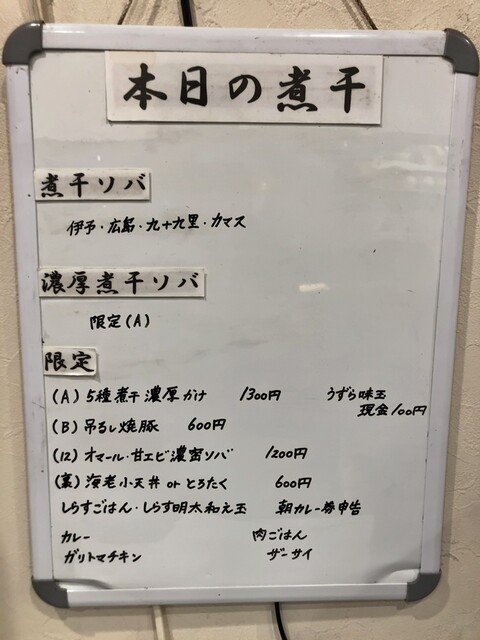 本日の煮干
煮干ソバ
伊予・広島・九十九里・カマス
濃厚煮干ソバ
限定(A)
限定
(A) 5種煮干濃厚かけ 1300円 うずら味玉
現金100円
(B) 吊るし焼豚 600円
(12) オマール・甘エビ濃密ソバ 1200円
(裏) 海老小天丼 or とろたく 600円
しらすごはん・しらす明太和え玉 朝カレー券申告
カレー 肉ごはん
ガリトマチキン ザーサイ